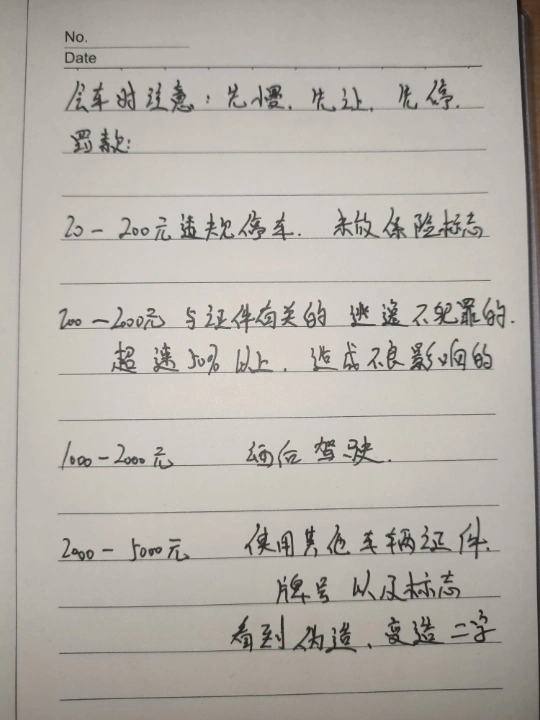 No.
Date
会车时注意：先慢、先让、先停.
罚款:
20－200元 违规停车. 未放保险标志
200－2000元 与证件有关的 逃逸不犯罪的.
超速50%以上. 造成不良影响的
1000－2000元 酒后驾驶.
2000－5000元 使用其他车辆证件、
牌号以及标志
看到伪造、变造二字